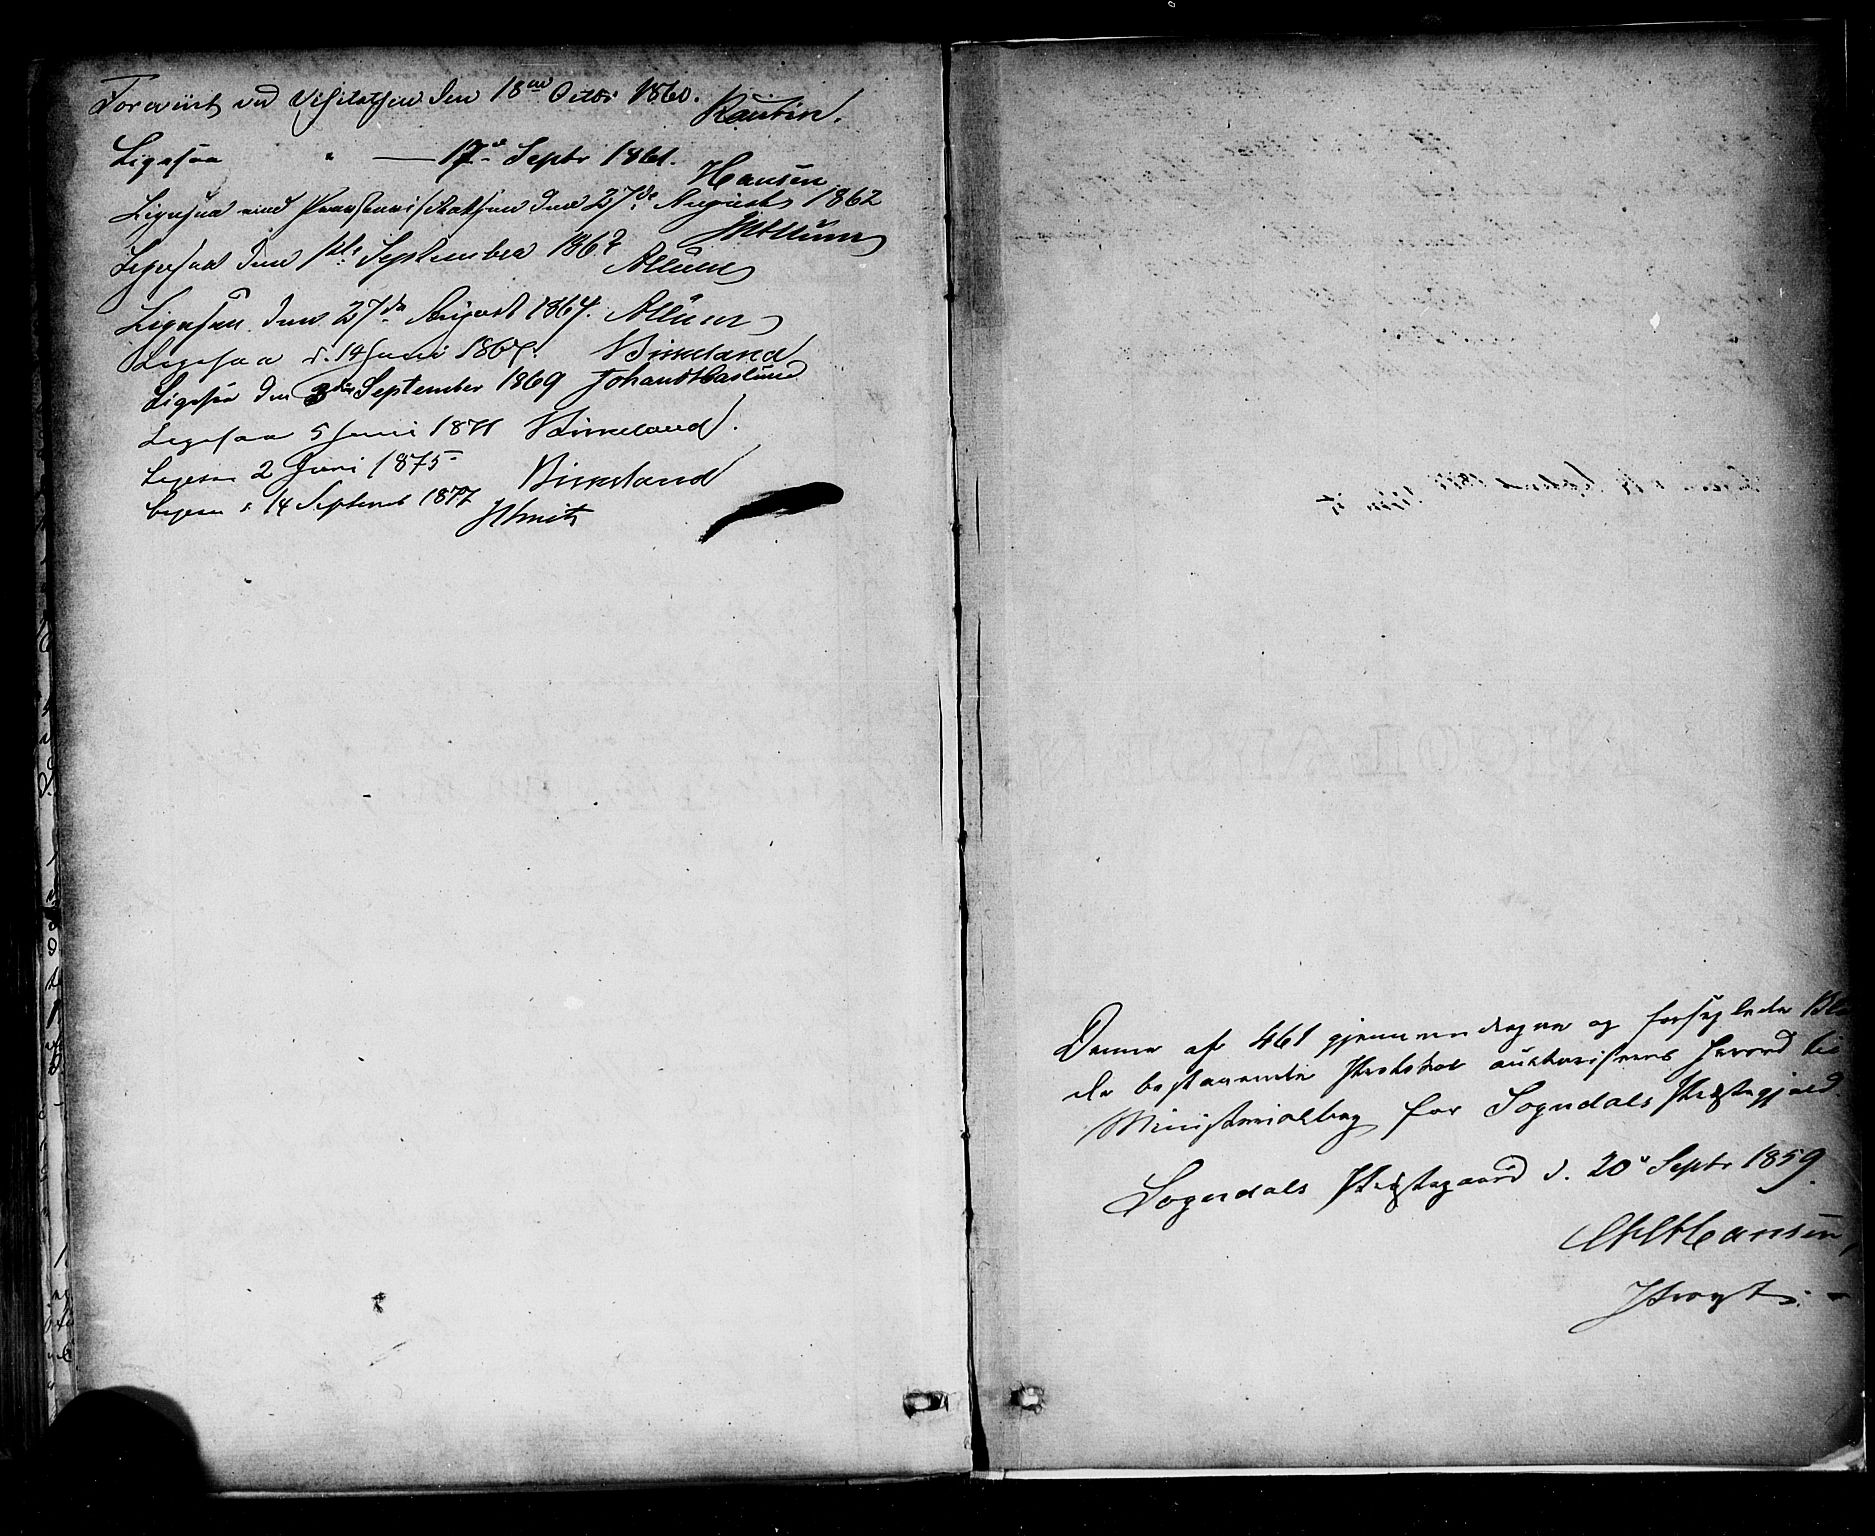 Foreviist ved Visitatsen den 18de Octbr 1860.
Kaurin.
Ligesaa " — 17de Septr 1861.
Hansen
Ligesaa ved Provstevisitatsen den 27de August 1862
Ligesaa den September 1863
Ligesaa den 27de August 1864.
Ligesaa d. 14 Juni 1867. Birkeland
Ligesaa den 3die September 1869 Johan Haslund
Ligesaa 5 Juni 1871 Birkeland.
Ligesaa 2 Juni 1875 Birkeland
Ligesaa d. 14 Septemb 1877
J Smitt
Denne af 461 gjennemdragne og forseglede Bla
de bestaaende Protokol authoriseres herved til
Ministerialbog for Sogndals Præstegjæld.
Sogndals Præstegaard d. 20de Septr 1859.
Hansen,
Provst. -